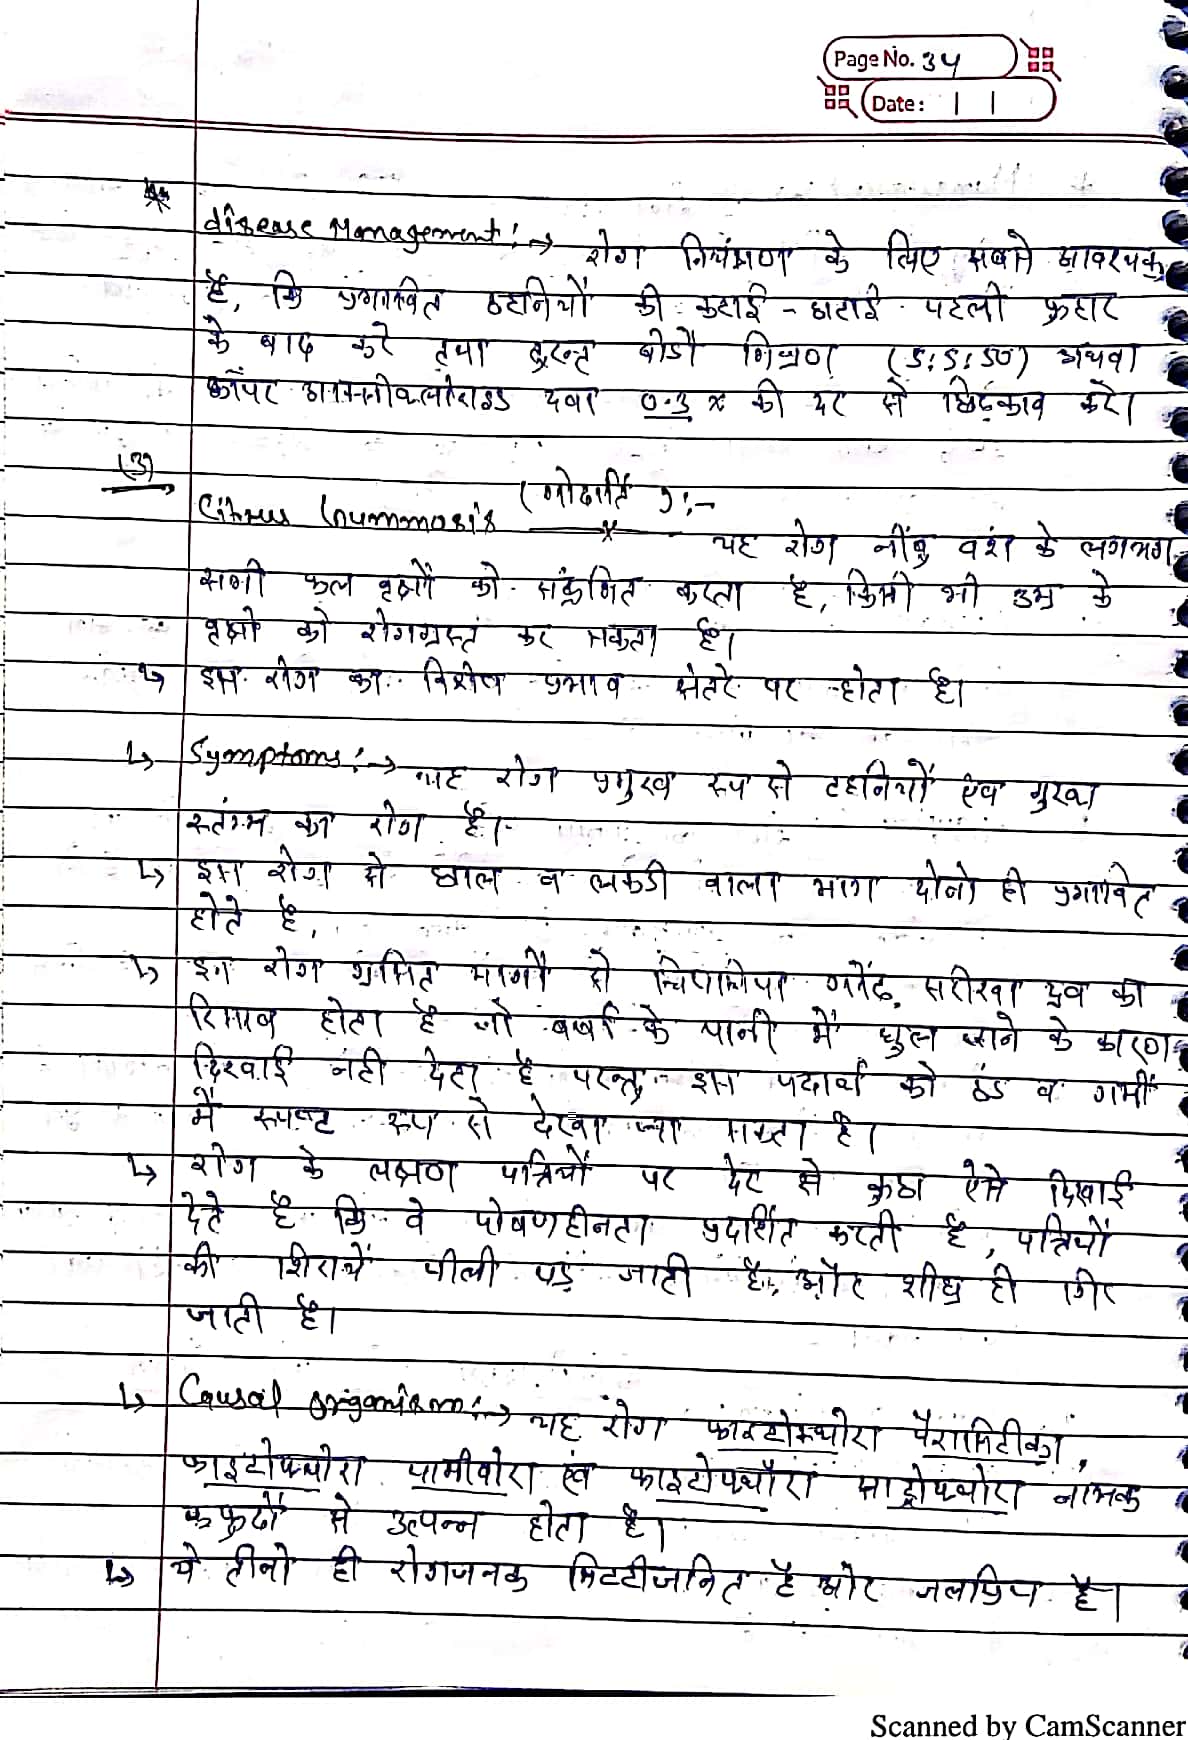 Page No. 34
Date: | |
disease Management :→ रोग नियंत्रण के लिए सबसे आवश्यक
है, कि प्रभावित टहनियों की कटाई - छटाई पहली फुहार
के बाद करे तथा तुरन्त बोर्डो मिश्रण (5:5:50) अथवा
कॉपर आक्सीक्लोराइड दवा 0.3 % की दर से छिड़काव करे।
(3)
Citrus Gummosis (गोदार्ति) :-
यह रोग नींबु वंश के लगभग
सभी फल वृक्षों को संक्रमित करता है, किसी भी उम्र के
वृक्षो को रोगग्रस्त कर सकता है।
↳ इस रोग का विशेष प्रभाव संतरे पर होता है।
↳ Symptoms :→ यह रोग प्रमुख रूप से टहनियों एंव मुख्य
स्तंम्भ का रोग है।
↳ इस रोग से छाल व लकडी वाला भाग दोनो ही प्रभावित
होते है,
↳ इन रोग ग्रसित भागों से चिपचिपा गोंद सरीखा द्रव का
रिसाव होता है जो बर्षा के पानी में धुल जाने के कारण
दिखाई नही देता है परन्तु इस पदार्थ को ठंड व गर्मी
में स्पष्ट रूप से देखा जा सकता है।
↳ रोग के लक्षण पत्तियों पर देर से कुछ ऐसे दिखाई
देते है कि वे पोषणहीनता प्रदर्शित करती है, पत्तियों
की शिरायें पीली पड़ जाती है, और शीघ्र ही गिर
जाती है।
↳ Causal organism :→ यह रोग फाइटोफ्थोरा पैरासिटीका,
फाइटोफ्थोरा पामीवोरा एंव फाइटोफ्थौरा साइट्रोफ्थोरा नामक
कफूदों से उत्पन्न होता है।
↳ ये तीनो ही रोगजनक मिटटीजनित है और जलप्रिय है।
Scanned by CamScanner